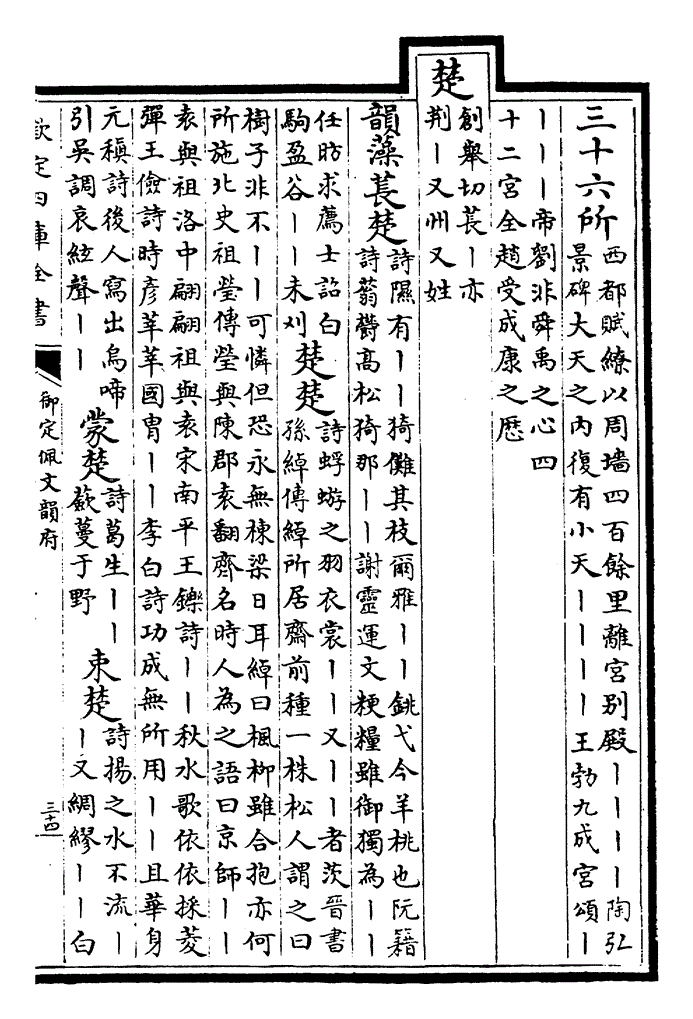 三十六所
西都賦繚以周墻四百餘里離宮别殿丨丨丨丨陶弘
景碑大天之内復有小天丨丨丨丨王勃九成宮頌丨
丨丨丨帝劉非舜禹之心四
十二宮全趙受成康之歴
楚
創舉切萇丨亦
荆丨又州又姓
韻藻萇楚
詩隰有丨丨猗儺其枝爾雅丨丨銚弋今羊桃也阮籍
詩蓊鬱高松猗那丨丨謝靈運文粳糧雖御獨為丨丨
任昉求薦士詔白
駒盈谷丨丨未刈
楚楚
詩蜉蝣之羽衣裳丨丨又丨丨者茨晉書
孫綽傳綽所居齋前種一株松人謂之曰
樹子非不丨丨可憐但恐永無棟梁日耳綽曰楓柳雖合抱亦何
所施北史祖瑩傳瑩與陳郡袁翻齊名時人為之語曰京師丨丨
袁與祖洛中翩翩祖與袁宋南平王鑠詩丨丨秋水歌依依採菱
彈王儉詩時彦莘莘國胄丨丨李白詩功成無所用丨丨且華身
元稹詩後人寫出烏啼
引吳調哀絃聲丨丨
蒙楚
詩葛生丨丨
蘞蔓于野
束楚
詩揚之水不流丨
丨又綢繆丨丨白
欽定四庫全書
御定佩文韻府
三十四